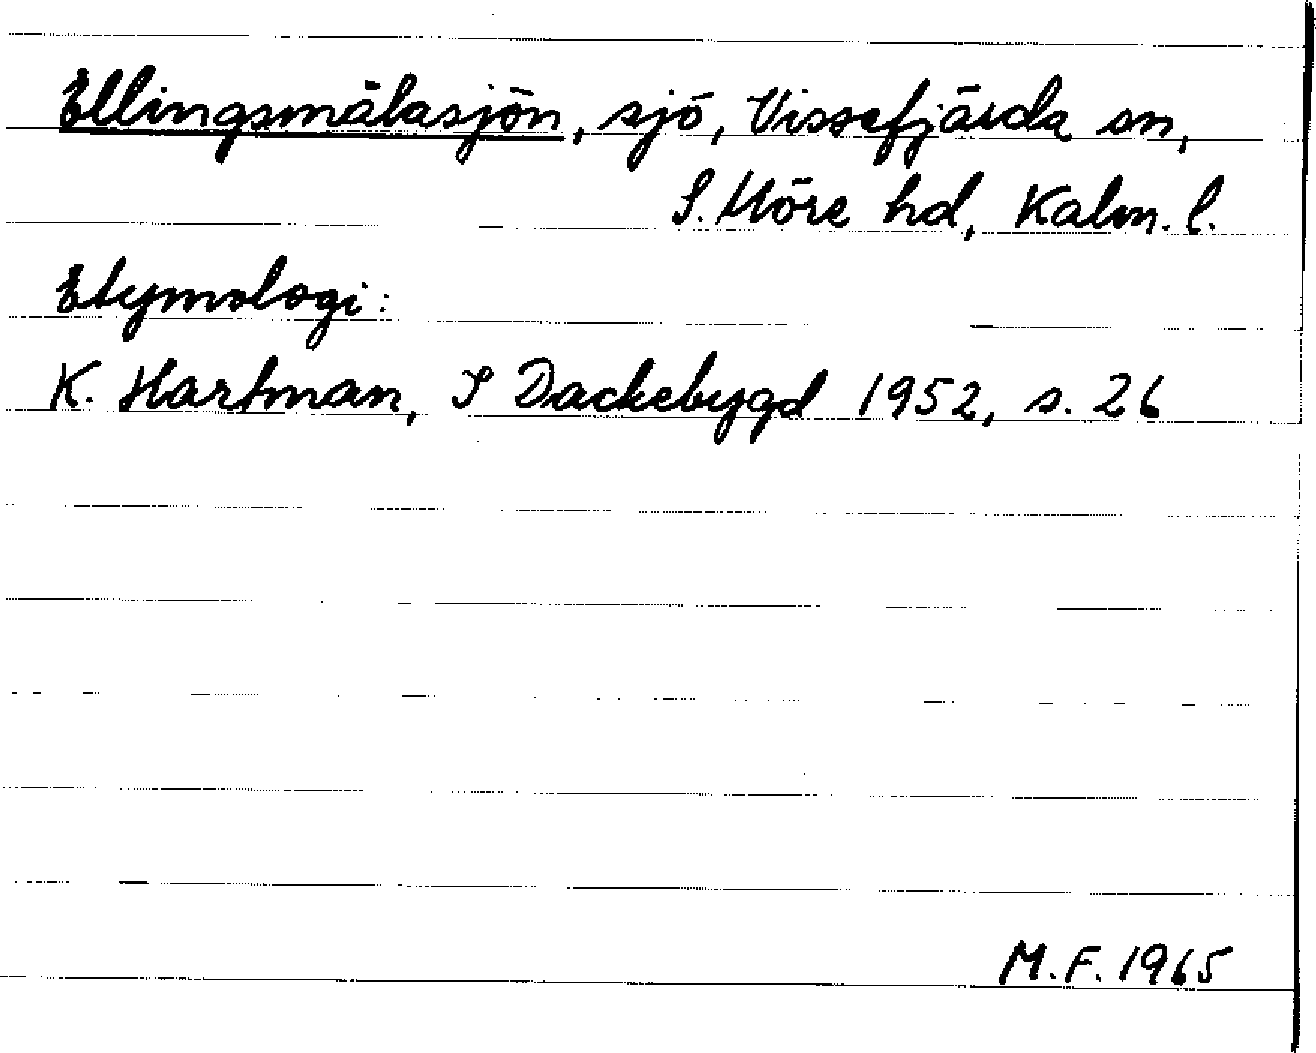 Ellingsmålasjön, sjö, Vissefjärda sn,
S. Möre hd, Kalm. l.
Etymologi:
K. Hartman, I Dackebygd 1952, s. 26
M.F. 1965